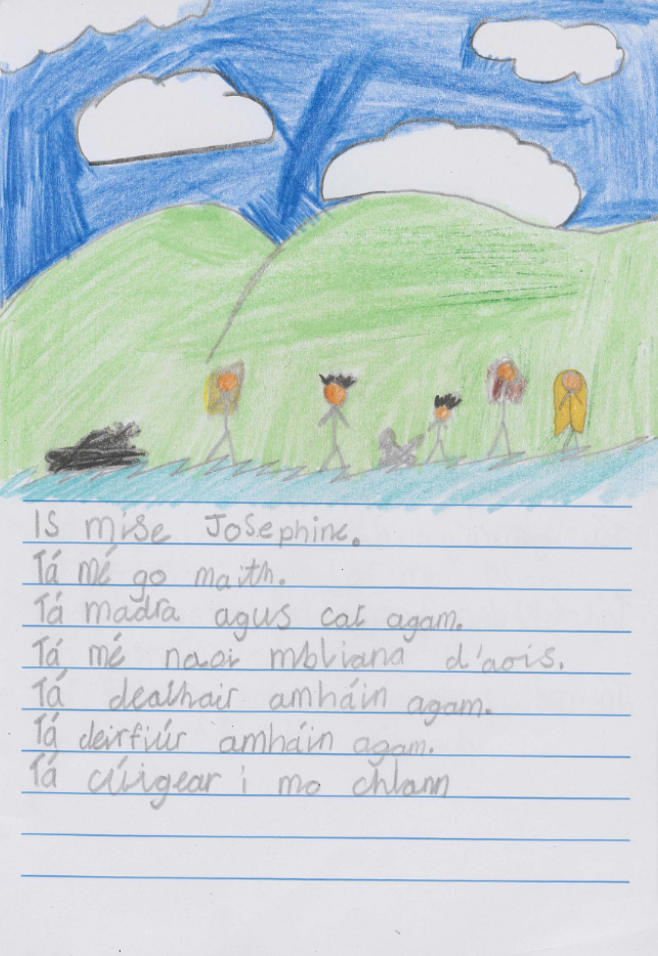 Is mise Josephine.
Tá mé go maith.
Tá madra agus cat agam.
Tá mé naoi mbliana d'aois.
Tá dealhair amháin agam.
Tá deirfiúr amháin agam.
Tá cúigear i mo chlann